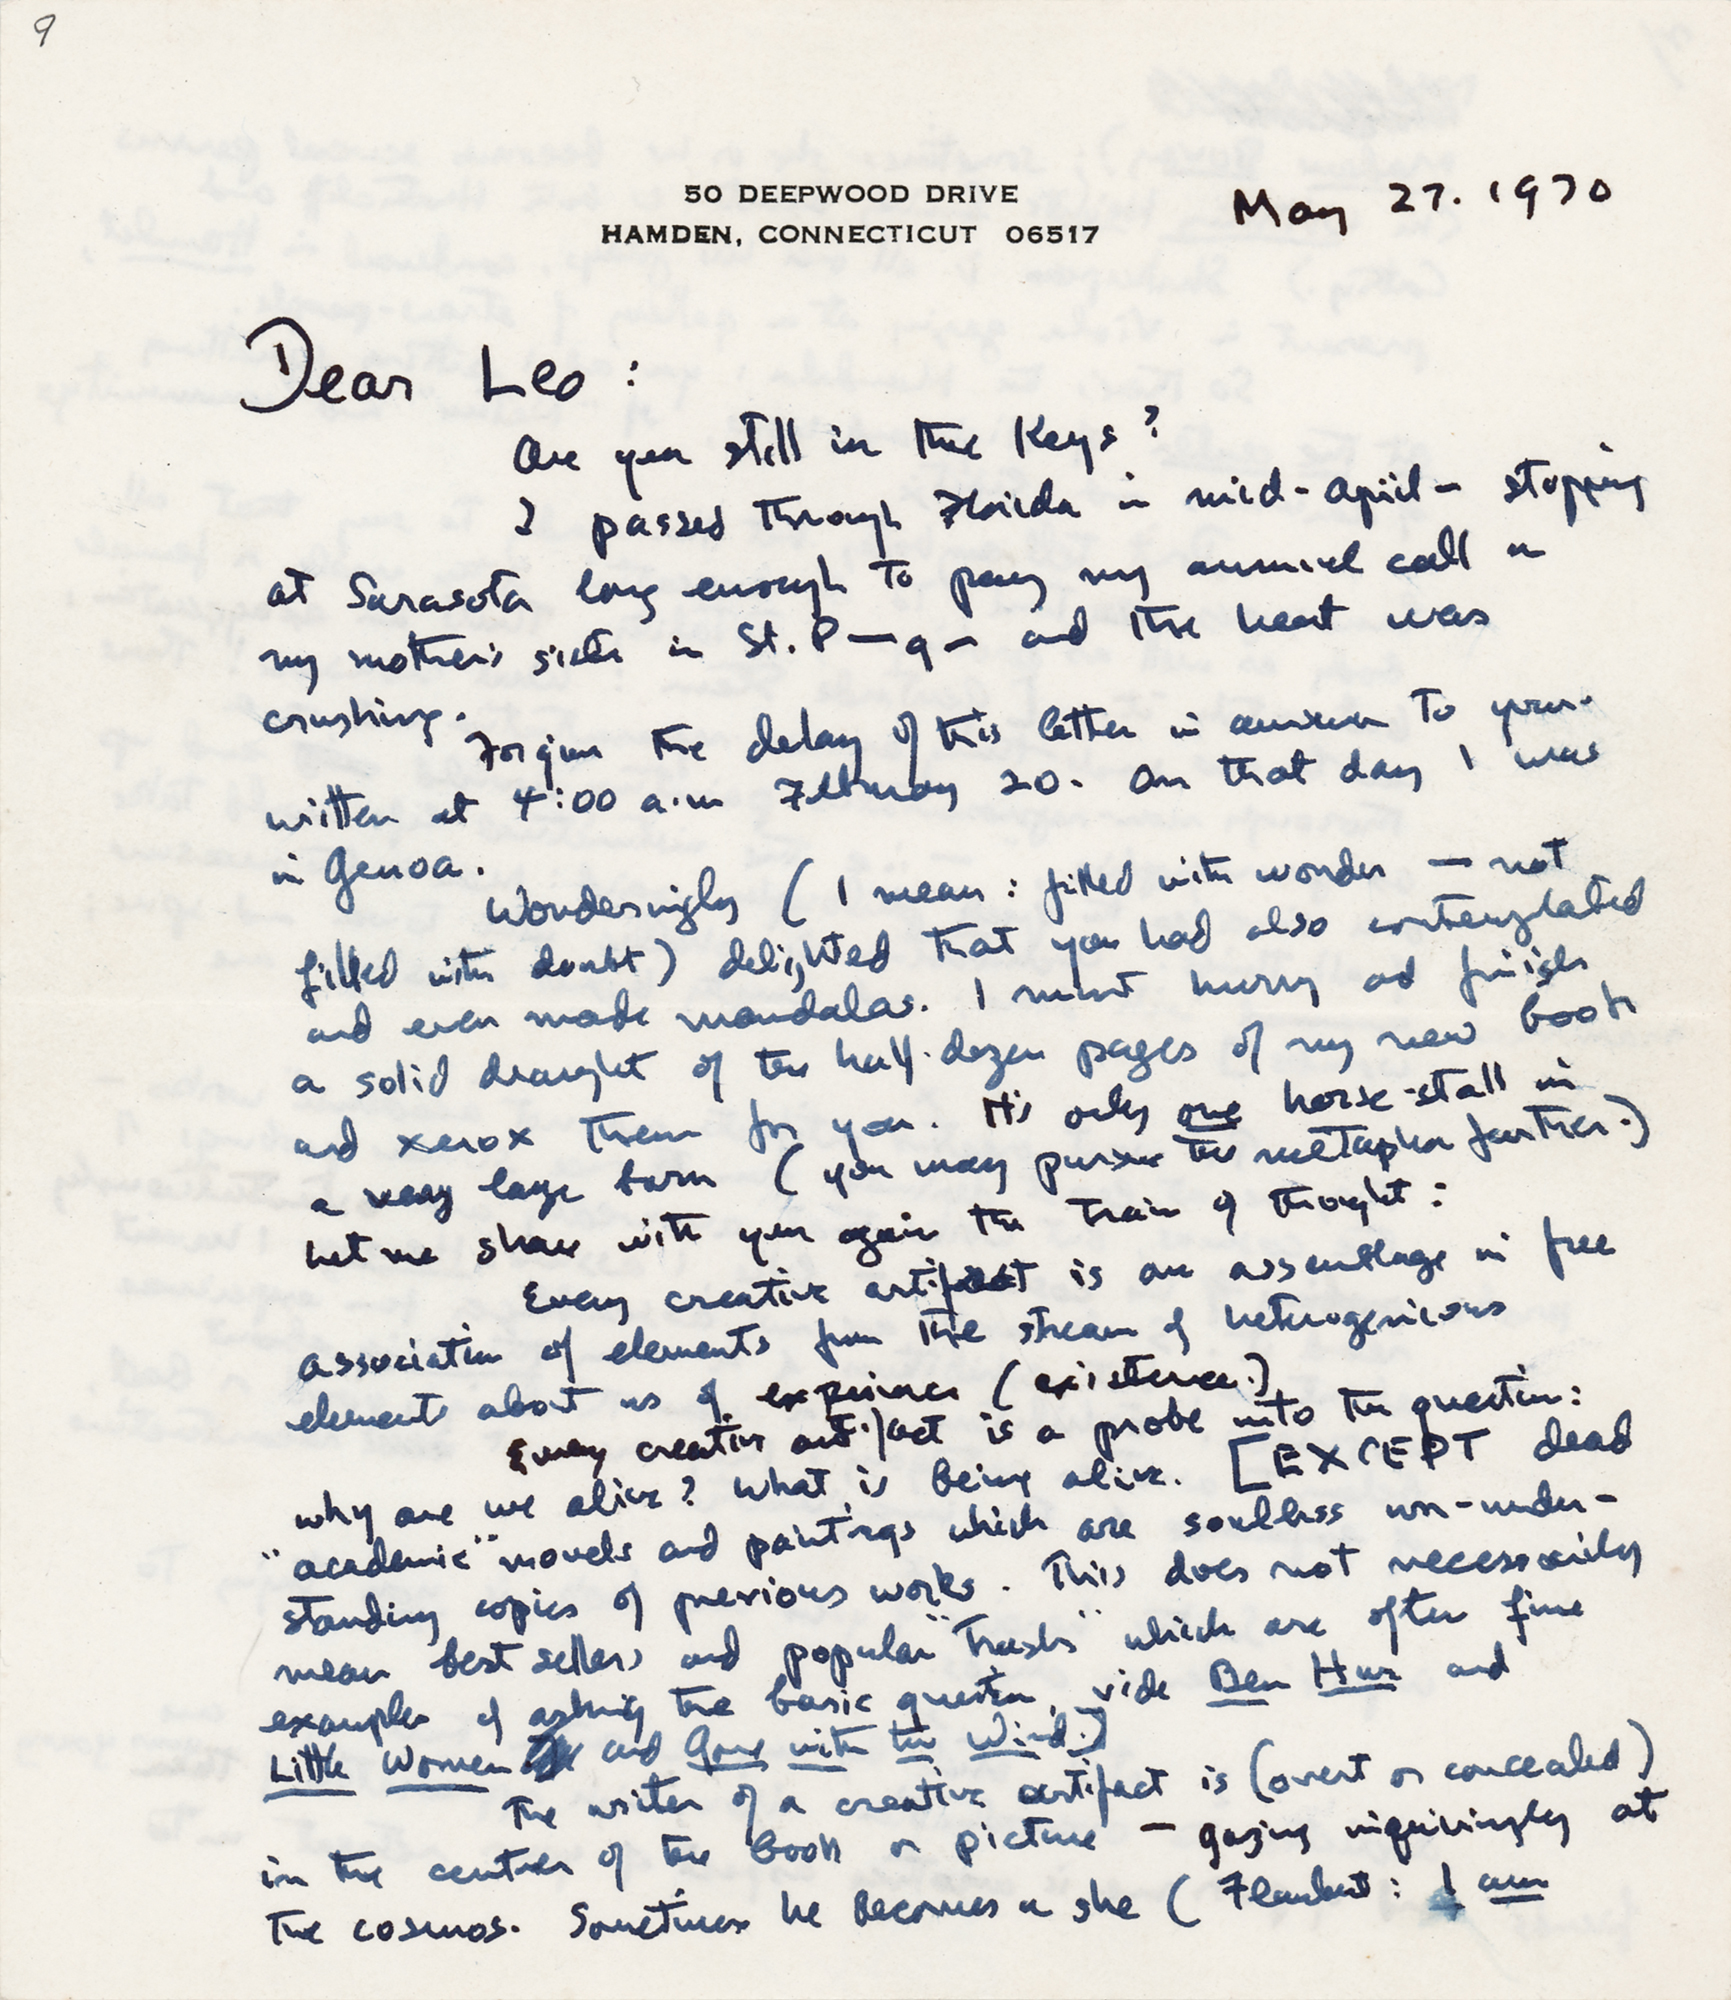 9
50 DEEPWOOD DRIVE
HAMDEN, CONNECTICUT 06517
May 27. 1970
Dear Leo:
Are you still in the Keys?
I passed through Florida in mid-April – stopping
at Sarasota long enough to pay my annual call on
my mother's sister in St. P—g – and the heat was
crushing.
Forgive the delay of this letter in answer to your
written at 4:00 a.m February 20. On that day I was
in Genoa.
Wonderingly (I mean: filled with wonder — not
filled with doubt) delighted that you had also contemplated
and even made mandalas. I must hurry and finish
a solid draught of the half-dozen pages of my new book
and xerox them for you. It's only one horse-stall in
a very large barn (you may pursue the metaphor further.)
Let me share with you again the train of thought:
Every creative artifact is an assemblage in free
association of elements from the stream of heterogenious
elements about us of experience (existence.)
Every creative artifact is a probe into the question:
why are we alive? What is being alive. [EXCEPT dead
"academic" novels and paintings which are soulless non-under-
standing copies of previous works. This does not necessarily
mean best sellers and popular "trash" which are often fine
examples of asking the basic question, vide Ben Hur and
Little Women and Gone with the Wind.]
The writer of a creative artifact is (overt or concealed)
in the center of the book or picture — gazing inquiringly at
the cosmos. Sometimes he becomes a she (Flaubert: I am